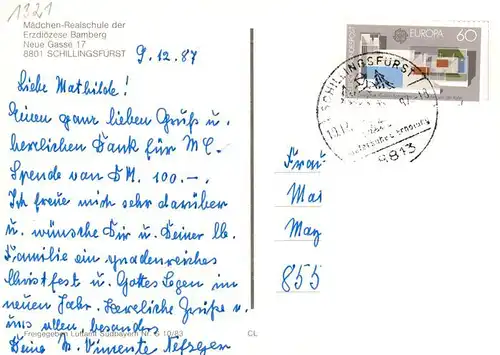 1321
Mädchen-Realschule der
Erzdiözese Bamberg
Neue Gasse 17
8801 SCHILLINGSFÜRST
9.12.87
Liebe Mathilde!
Einen ganz lieben Gruß u.
herzlichen Dank für
Spende von DM. 100.–.
Ich freue mich sehr darüber
u. wünsche Dir u. Deiner lb.
Familie ein gnadenreiches
Christfest u. Gottes Segen im
neuen Jahr. Herzliche Grüße v.
uns allen, besonders
Deine
Freigegeben Luftamt Südbayern Nr. G 10/83
CL
EUROPA 60
SCHILLINGSFÜRST
8813
Frau
Mat
Mag
855